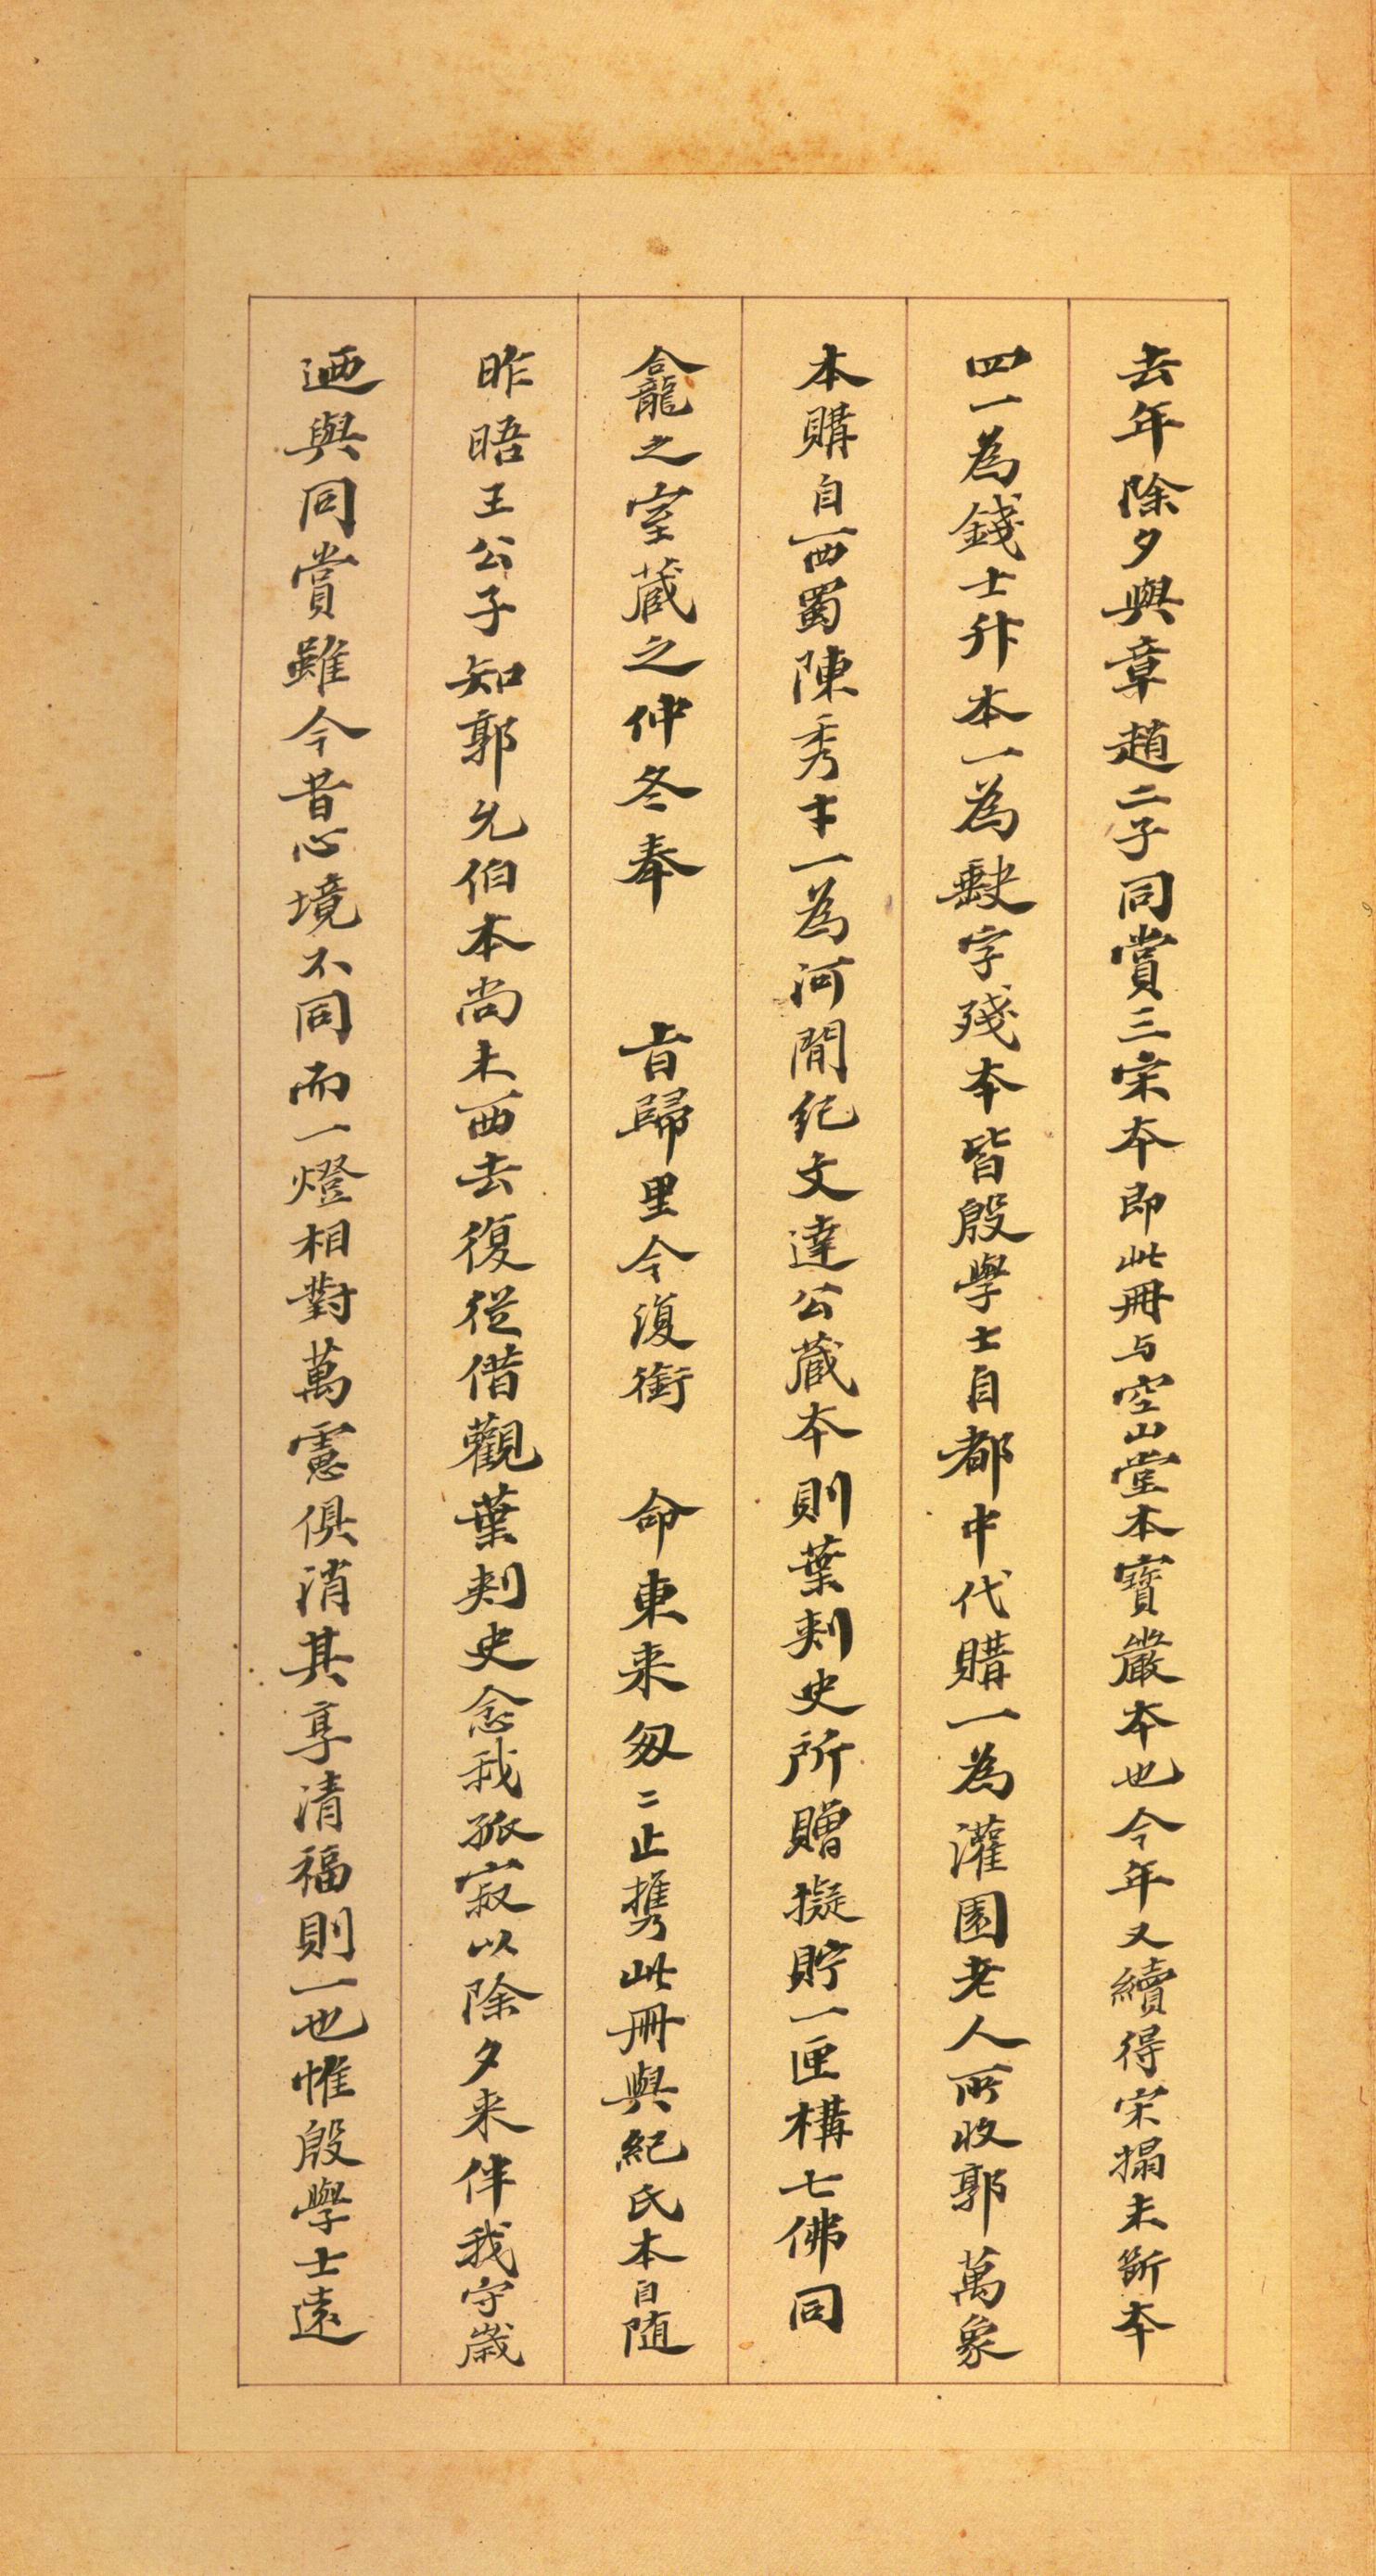 去年除夕與章趙二子同賞三宋本即此冊与空山堂本寶嚴本也今年又續得宋搨未斷本
四一為錢士升本一為缺字殘本皆殷學士自都中代購一為灌園老人所收郭萬象
本購自西蜀陳秀才一為河間紀文達公藏本則葉刾史所贈擬貯一匣構七佛同
龕之室藏之仲冬奉 旨歸里今復銜 命東来匆二止攜此冊與紀氏本自随
昨晤王公子知郭允伯本尚未西去復從借觀葉刾史念我孤寂以除夕来伴我守歲
迺與同賞雖今昔心境不同而一燈相對萬慮俱消其享清福則一也惟殷學士遠